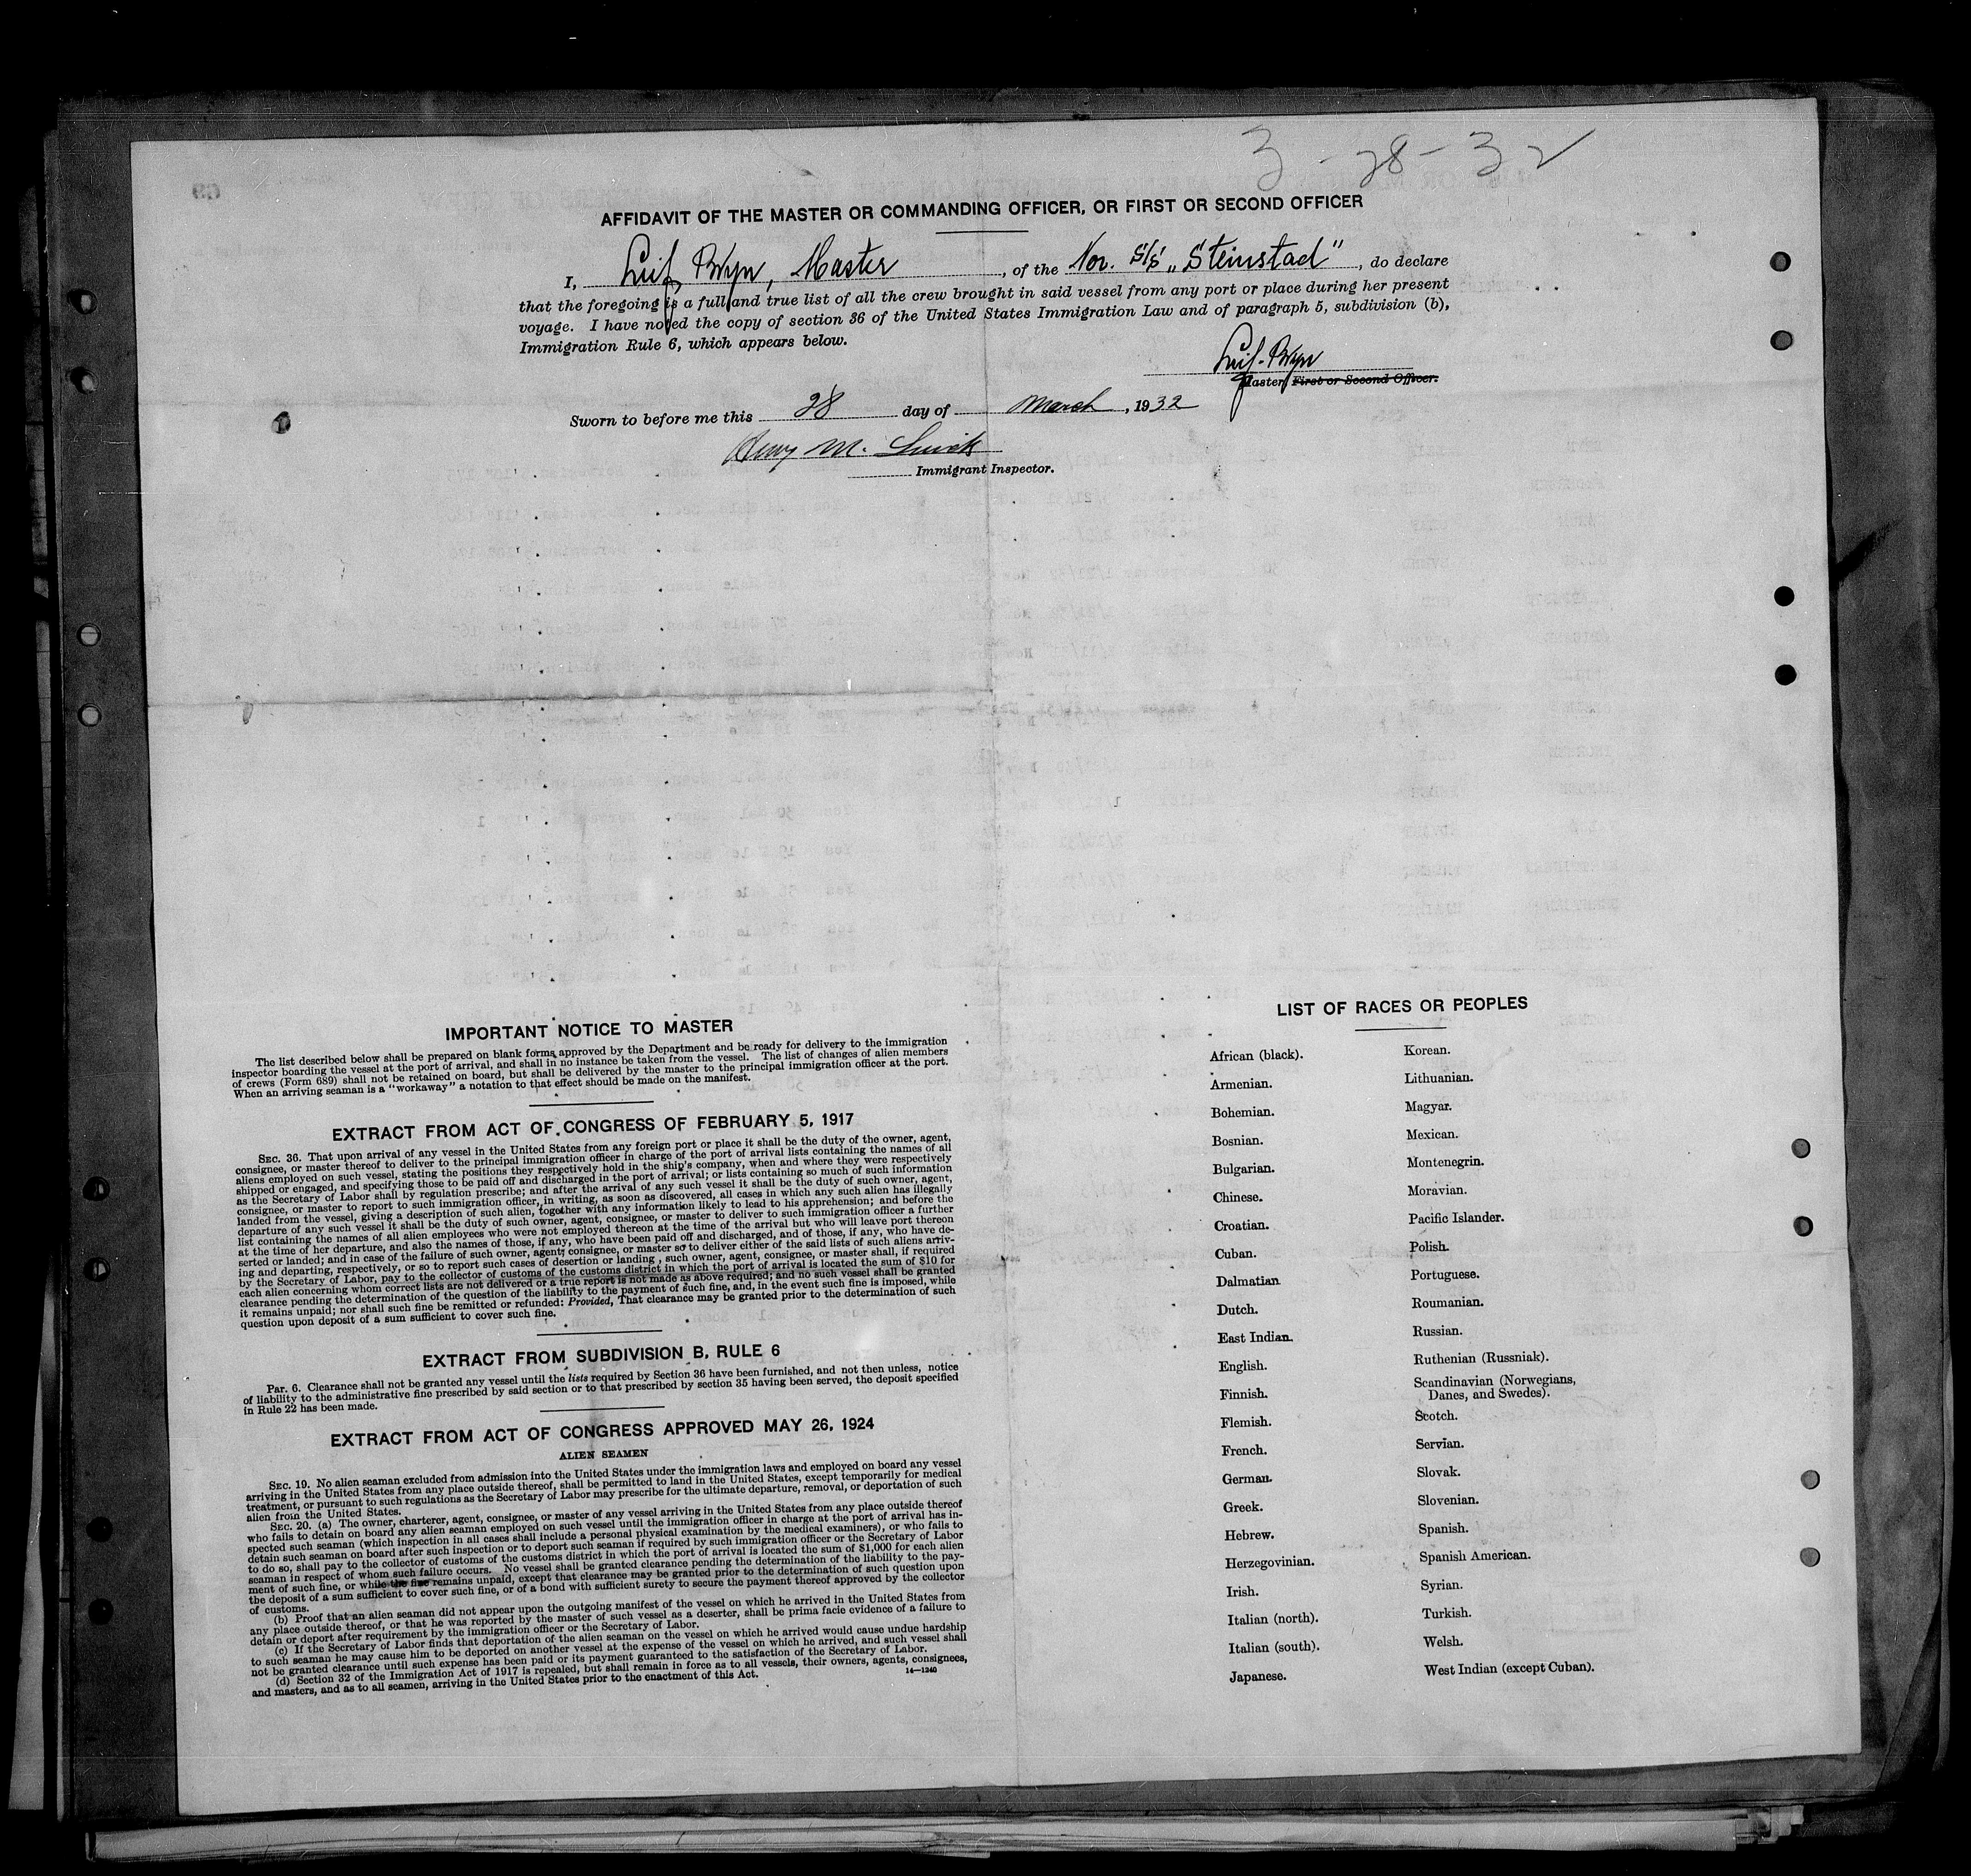 3-28-32
AFFIDAVIT OF THE MASTER OR COMMANDING OFFICER, OR FIRST OR SECOND OFFICER
I, Leif Bryn, Master, of the Nor. S/S „Steinstad”, do declare
that the foregoing is a full and true list of all the crew brought in said vessel from any port or place during her present
voyage. I have noted the copy of section 36 of the United States Immigration Law and of paragraph 5, subdivision (b),
Immigration Rule 6, which appears below.
Leif Bryn
Master, First or Second Officer.
Sworn to before me this 28 day of March, 1932
Henry M.
Immigrant Inspector.
IMPORTANT NOTICE TO MASTER
The list described below shall be prepared on blank forms approved by the Department and be ready for delivery to the immigration
inspector boarding the vessel at the port of arrival, and shall in no instance be taken from the vessel. The list of changes of alien members
of crews (Form 689) shall not be retained on board, but shall be delivered by the master to the principal immigration officer at the port.
When an arriving seaman is a "workaway" a notation to that effect should be made on the manifest.
EXTRACT FROM ACT OF CONGRESS OF FEBRUARY 5, 1917
SEC. 36. That upon arrival of any vessel in the United States from any foreign port or place it shall be the duty of the owner, agent,
consignee, or master thereof to deliver to the principal immigration officer in charge of the port of arrival lists containing the names of all
aliens employed on such vessel, stating the positions they respectively hold in the ship's company, when and where they were respectively
shipped or engaged, and specifying those to be paid off and discharged in the port of arrival; or lists containing so much of such information
as the Secretary of Labor shall by regulation prescribe; and after the arrival of any such vessel it shall be the duty of such owner, agent,
consignee, or master to report to such immigration officer, in writing, as soon as discovered, all cases in which any such alien has illegally
landed from the vessel, giving a description of such alien, together with any information likely to lead to his apprehension; and before the
departure of any such vessel it shall be the duty of such owner, agent, consignee, or master to deliver to such immigration officer a further
list containing the names of all alien employees who were not employed thereon at the time of the arrival but who will leave port thereon
at the time of her departure, and also the names of those, if any, who have been paid off and discharged, and of those, if any, who have de-
serted or landed; and in case of the failure of such owner, agent, consignee, or master so to deliver either of the said lists of such aliens arriv-
ing and departing, respectively, or so to report such cases of desertion or landing, such owner, agent, consignee, or master shall, if required
by the Secretary of Labor, pay to the collector of customs of the customs district in which the port of arrival is located the sum of $10 for
each alien concerning whom correct lists are not delivered or a true report is not made as above required; and no such vessel shall be granted
clearance pending the determination of the question of the liability to the payment of such fine, and, in the event such fine is imposed, while
it remains unpaid; nor shall such fine be remitted or refunded: Provided, That clearance may be granted prior to the determination of such
question upon deposit of a sum sufficient to cover such fine.
EXTRACT FROM SUBDIVISION B, RULE 6
Par. 6. Clearance shall not be granted any vessel until the lists required by Section 36 have been furnished, and not then unless, notice
of liability to the administrative fine prescribed by said section or to that prescribed by section 35 having been served, the deposit specified
in Rule 22 has been made.
EXTRACT FROM ACT OF CONGRESS APPROVED MAY 26, 1924
ALIEN SEAMEN
SEC. 19. No alien seaman excluded from admission into the United States under the immigration laws and employed on board any vessel
arriving in the United States from any place outside thereof, shall be permitted to land in the United States, except temporarily for medical
treatment, or pursuant to such regulations as the Secretary of Labor may prescribe for the ultimate departure, removal, or deportation of such
alien from the United States.
SEC. 20. (a) The owner, charterer, agent, consignee, or master of any vessel arriving in the United States from any place outside thereof
who fails to detain on board any alien seaman employed on such vessel until the immigration officer in charge at the port of arrival has in-
spected such seaman (which inspection in all cases shall include a personal physical examination by the medical examiners), or who fails to
detain such seaman on board after such inspection or to deport such seaman if required by such immigration officer or the Secretary of Labor
to do so, shall pay to the collector of customs of the customs district in which the port of arrival is located the sum of $1,000 for each alien
seaman in respect of whom such failure occurs. No vessel shall be granted clearance pending the determination of the liability to the pay-
ment of such fine, or while the fine remains unpaid, except that clearance may be granted prior to the determination of such question upon
the deposit of a sum sufficient to cover such fine, or of a bond with sufficient surety to secure the payment thereof approved by the collector
of customs.
(b) Proof that an alien seaman did not appear upon the outgoing manifest of the vessel on which he arrived in the United States from
any place outside thereof, or that he was reported by the master of such vessel as a deserter, shall be prima facie evidence of a failure to
detain or deport after requirement by the immigration officer or the Secretary of Labor.
(c) If the Secretary of Labor finds that deportation of the alien seaman on the vessel on which he arrived would cause undue hardship
to such seaman he may cause him to be deported on another vessel at the expense of the vessel on which he arrived, and such vessel shall
not be granted clearance until such expense has been paid or its payment guaranteed to the satisfaction of the Secretary of Labor.
(d) Section 32 of the Immigration Act of 1917 is repealed, but shall remain in force as to all vessels, their owners, agents, consignees,
and masters, and as to all seamen, arriving in the United States prior to the enactment of this Act.
14—1240
LIST OF RACES OR PEOPLES
African (black).
Armenian.
Bohemian.
Bosnian.
Bulgarian.
Chinese.
Croatian.
Cuban.
Dalmatian.
Dutch.
East Indian.
English.
Finnish.
Flemish.
French.
German.
Greek.
Hebrew.
Herzegovinian.
Irish.
Italian (north).
Italian (south).
Japanese.
Korean.
Lithuanian.
Magyar.
Mexican.
Montenegrin.
Moravian.
Pacific Islander.
Polish.
Portuguese.
Roumanian.
Russian.
Ruthenian (Russniak).
Scandinavian (Norwegians,
Danes, and Swedes).
Scotch.
Servian.
Slovak.
Slovenian.
Spanish.
Spanish American.
Syrian.
Turkish.
Welsh.
West Indian (except Cuban).